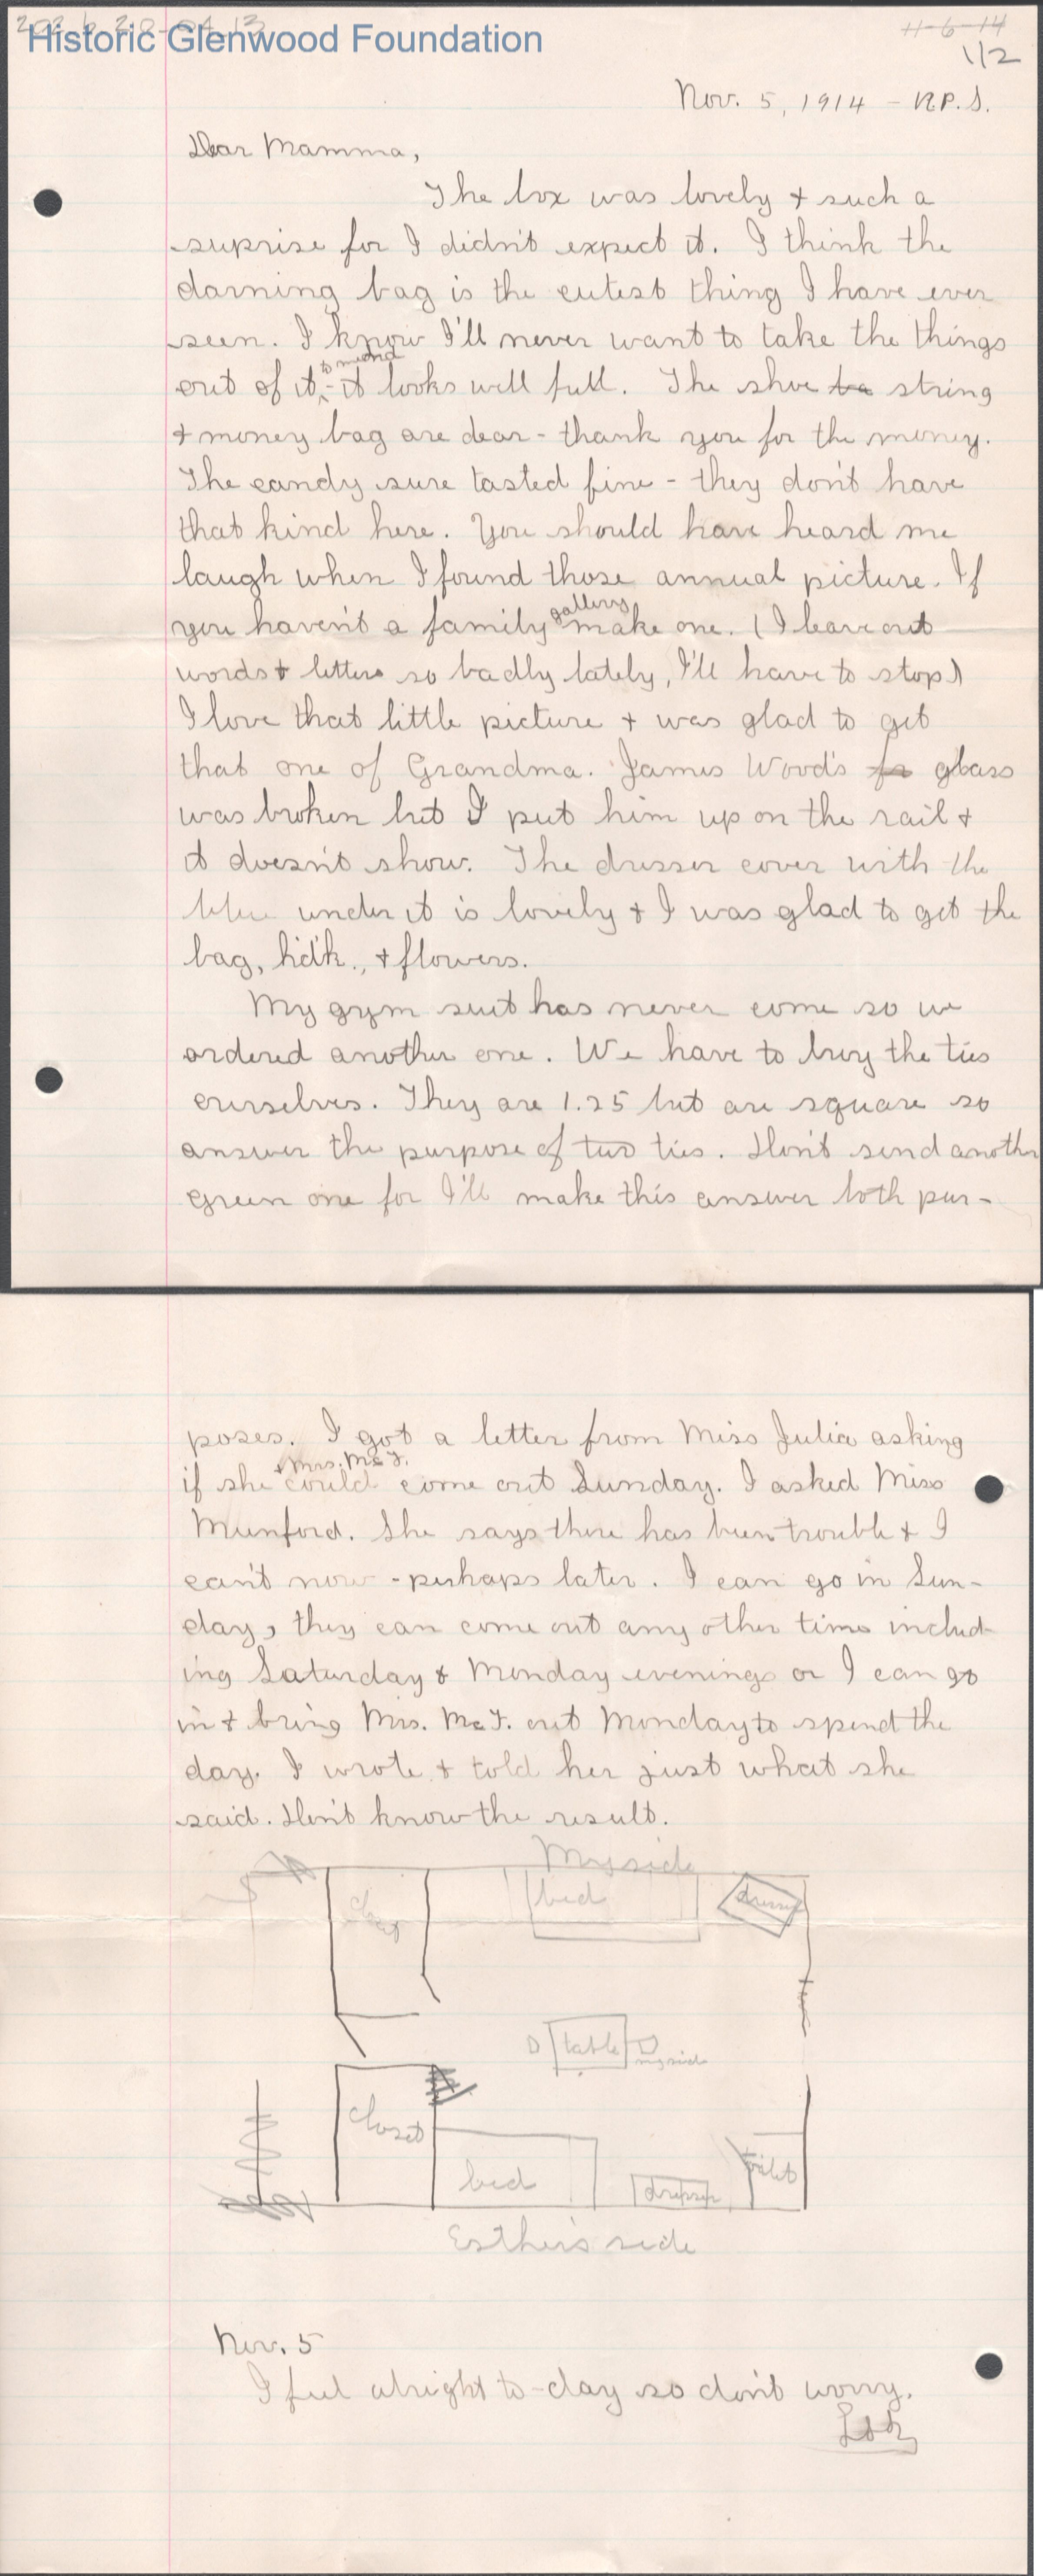 202.6.210-04.13
Historic Glenwood Foundation
11-6-14
1/2
Nov. 5, 1914 - R.P.S.
Dear Mamma,
The box was lovely + such a
suprise for I didn't expect it. I think the
darning bag is the cutest thing I have ever
seen. I know I'll never want to take the things
to mend
out of it, - it looks well full. The shoe ba string
+ money bag are dear - thank you for the money.
The candy sure tasted fine - they don't have
that kind here. You should have heard me
laugh when I found those annual picture. If
gallery
you haven't a family make one. (I leave out
words + letters so badly lately, I'll have to stop)
I love that little picture + was glad to get
that one of Grandma. James Wood's fr glass
was broken but I put him up on the rail +
it doesn't show. The dresser cover with the
blue under it is lovely + I was glad to get the
bag, hd'k., + flowers.
My gym suit has never come so we
ordered another one. We have to buy the ties
ourselves. They are 1.25 but are square so
answer the purpose of two ties. Don't send another
green one for I'll make this answer both pur-
poses. I got a letter from Miss Julia asking
+ Mrs. McF.
if she could come out Sunday. I asked Miss
Munford. She says there has been trouble + I
can't now - perhaps later. I can go in Sun-
day, they can come out any other time includ-
ing Saturday + Monday evenings or I can go
in + bring Mrs. McF. out Monday to spend the
day. I wrote + told her just what she
said. Don't know the result.
My side
closet
bed
dresser
table
my side
closet
bed
dresser
toilet
Esther's side
Nov. 5
I feel alright to-day so don't worry.